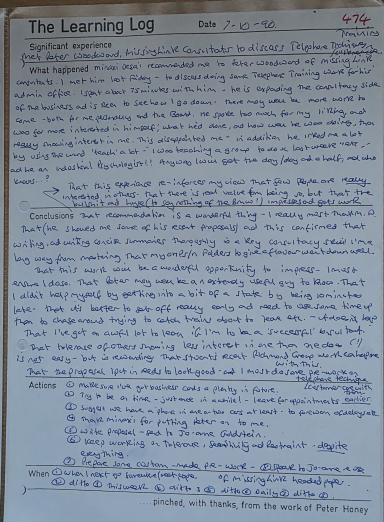 The Learning Log Date 7-10-90. 474
Training
Significant experience
Met Peter Woodward, Missing Link Consultants to discuss Telephone Techniques
What happened Minoo Desai recommended me to Peter Woodward of Missing Link
consultants. I met him last Friday - to discuss doing some Telephone Training work for his
admin office. I spent about 75 minutes with him - he is expanding the consultancy side
of the business and is keen to see how I go down. There may be more work to
come - both for me personally and the Board. He spoke too much for my liking, and
was far more interested in himself, what he'd done, and how well he was doing, than
really showing interest in me. This disappointed me - in addition he irked me a lot
by using the word 'teach' a lot - I was teaching a group to do a last week 'etc, -
and he an Industrial Psychologist!! Anyway I was got the day/day and a half, and who
knows...?
That this experience re-inforces my view that few people are really
interested in others. That there is real value from being so, but that the
bullshit and hype (to say nothing of the BMW!) impresses and gets work
Conclusions That recommendation is a wonderful thing - I really must thank M. D.
That (he should me some of his recent proposals) and this confirmed that
writing, and writing concise summaries thoroughly is a key consultancy skill I'm a
long way from mastering That my in Folders to give a favour went down well.
That this work will be a wonderful opportunity to impress - I must
ensure I do so. That Peter may well be an extremely useful guy to know. That
I didn't help myself by getting into a bit of a state by being
late. That it's better to set off really early and need to use some time up
than to chase around trying to catch trains about to leave etc. - it does help
That I've got an awful lot to learn if I'm to be a successful consultant.
That tolerance of others showing less interest in me than me does (!)
is not easy - but is rewarding That students recent Richmond Group work can help me
with this.
That the proposal I put in needs to look good - and I must do some pre-work on
telephone technique
Actions 1 make sure I've got business cards a plenty in future.
2 Try to be on time - just once in a while! - leave for appointments earlier
3 Suggest we have a phone in one or two cars at least - to forewarn of delays etc
4 Thank Minoo for putting Peter on to me.
5 Write proposal - fax to Jo-anne Goldstein.
6 Keep working on Tolerance, sensitivity and restraint - despite
everything.
7 Prepare some custom-made pre-work - 8 speak to Jo-anne re use
of Missing Link headed paper.
When 1 when I next go
2 ditto 3 this week 4 ditto 3 5 ditto 6 Daily 7 ditto 8
....pinched, with thanks, from the work of Peter Honey